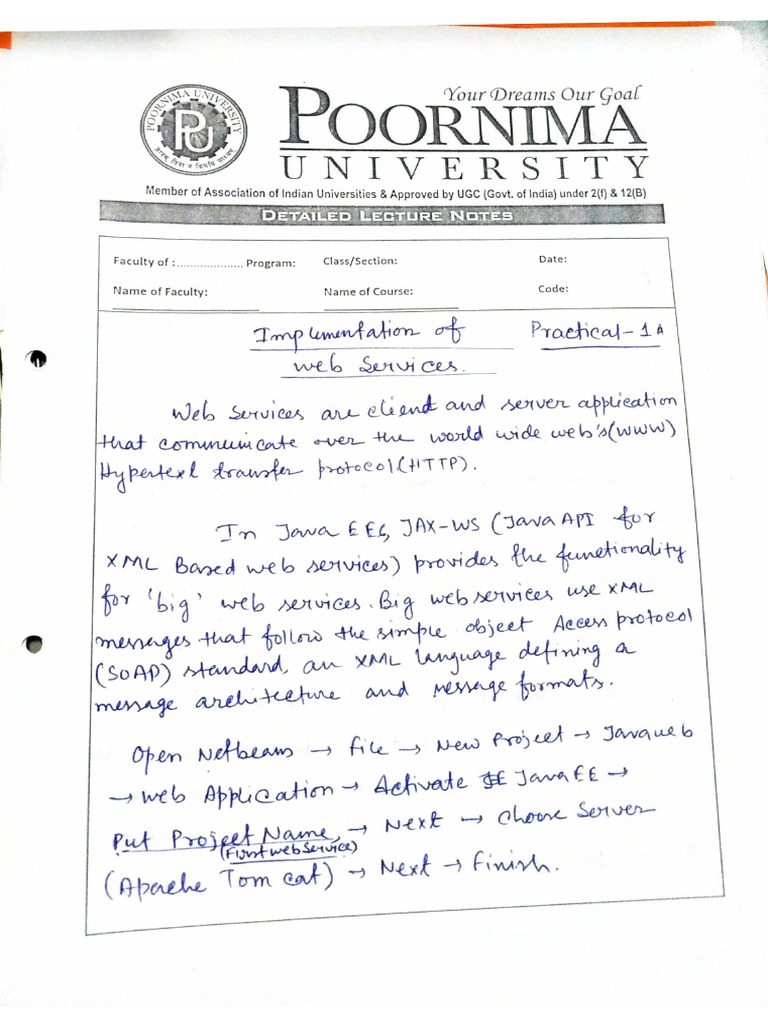 Your Dreams Our Goal
POORNIMA UNIVERSITY
PU
POORNIMA
UNIVERSITY
Member of Association of Indian Universities & Approved by UGC (Govt. of India) under 2(f) & 12(B)
DETAILED LECTURE NOTES
Faculty of :.................... Program: Class/Section: Date:
Name of Faculty: Name of Course: Code:
Implementation of Practical-1A
web Services.
Web Services are client and server application
that communicate over the world wide web's(WWW)
Hypertext transfer protocol(HTTP).
In Java EE6, JAX-WS (Java API for
XML Based web services) provides the functionality
for 'big' web services. Big web services use XML
messages that follow the simple object Access protocol
(SOAP) standard, an XML language defining a
message architecture and message formats.
Open Netbeans → file → New Project → Javaweb
→ web Application → Activate JavaEE →
Put Project Name, → Next → Choose Server
(FirstwebService)
(Apache Tom cat) → Next → Finish.